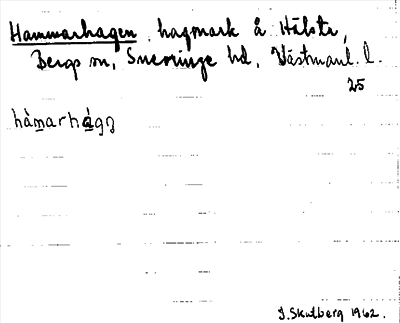 Hammarhagen, hagmark å Hålsta,
Bergs sn, Snevringe hd, Västmanl. l.
25
hàmarhágn̥
J. Skulberg 1962.